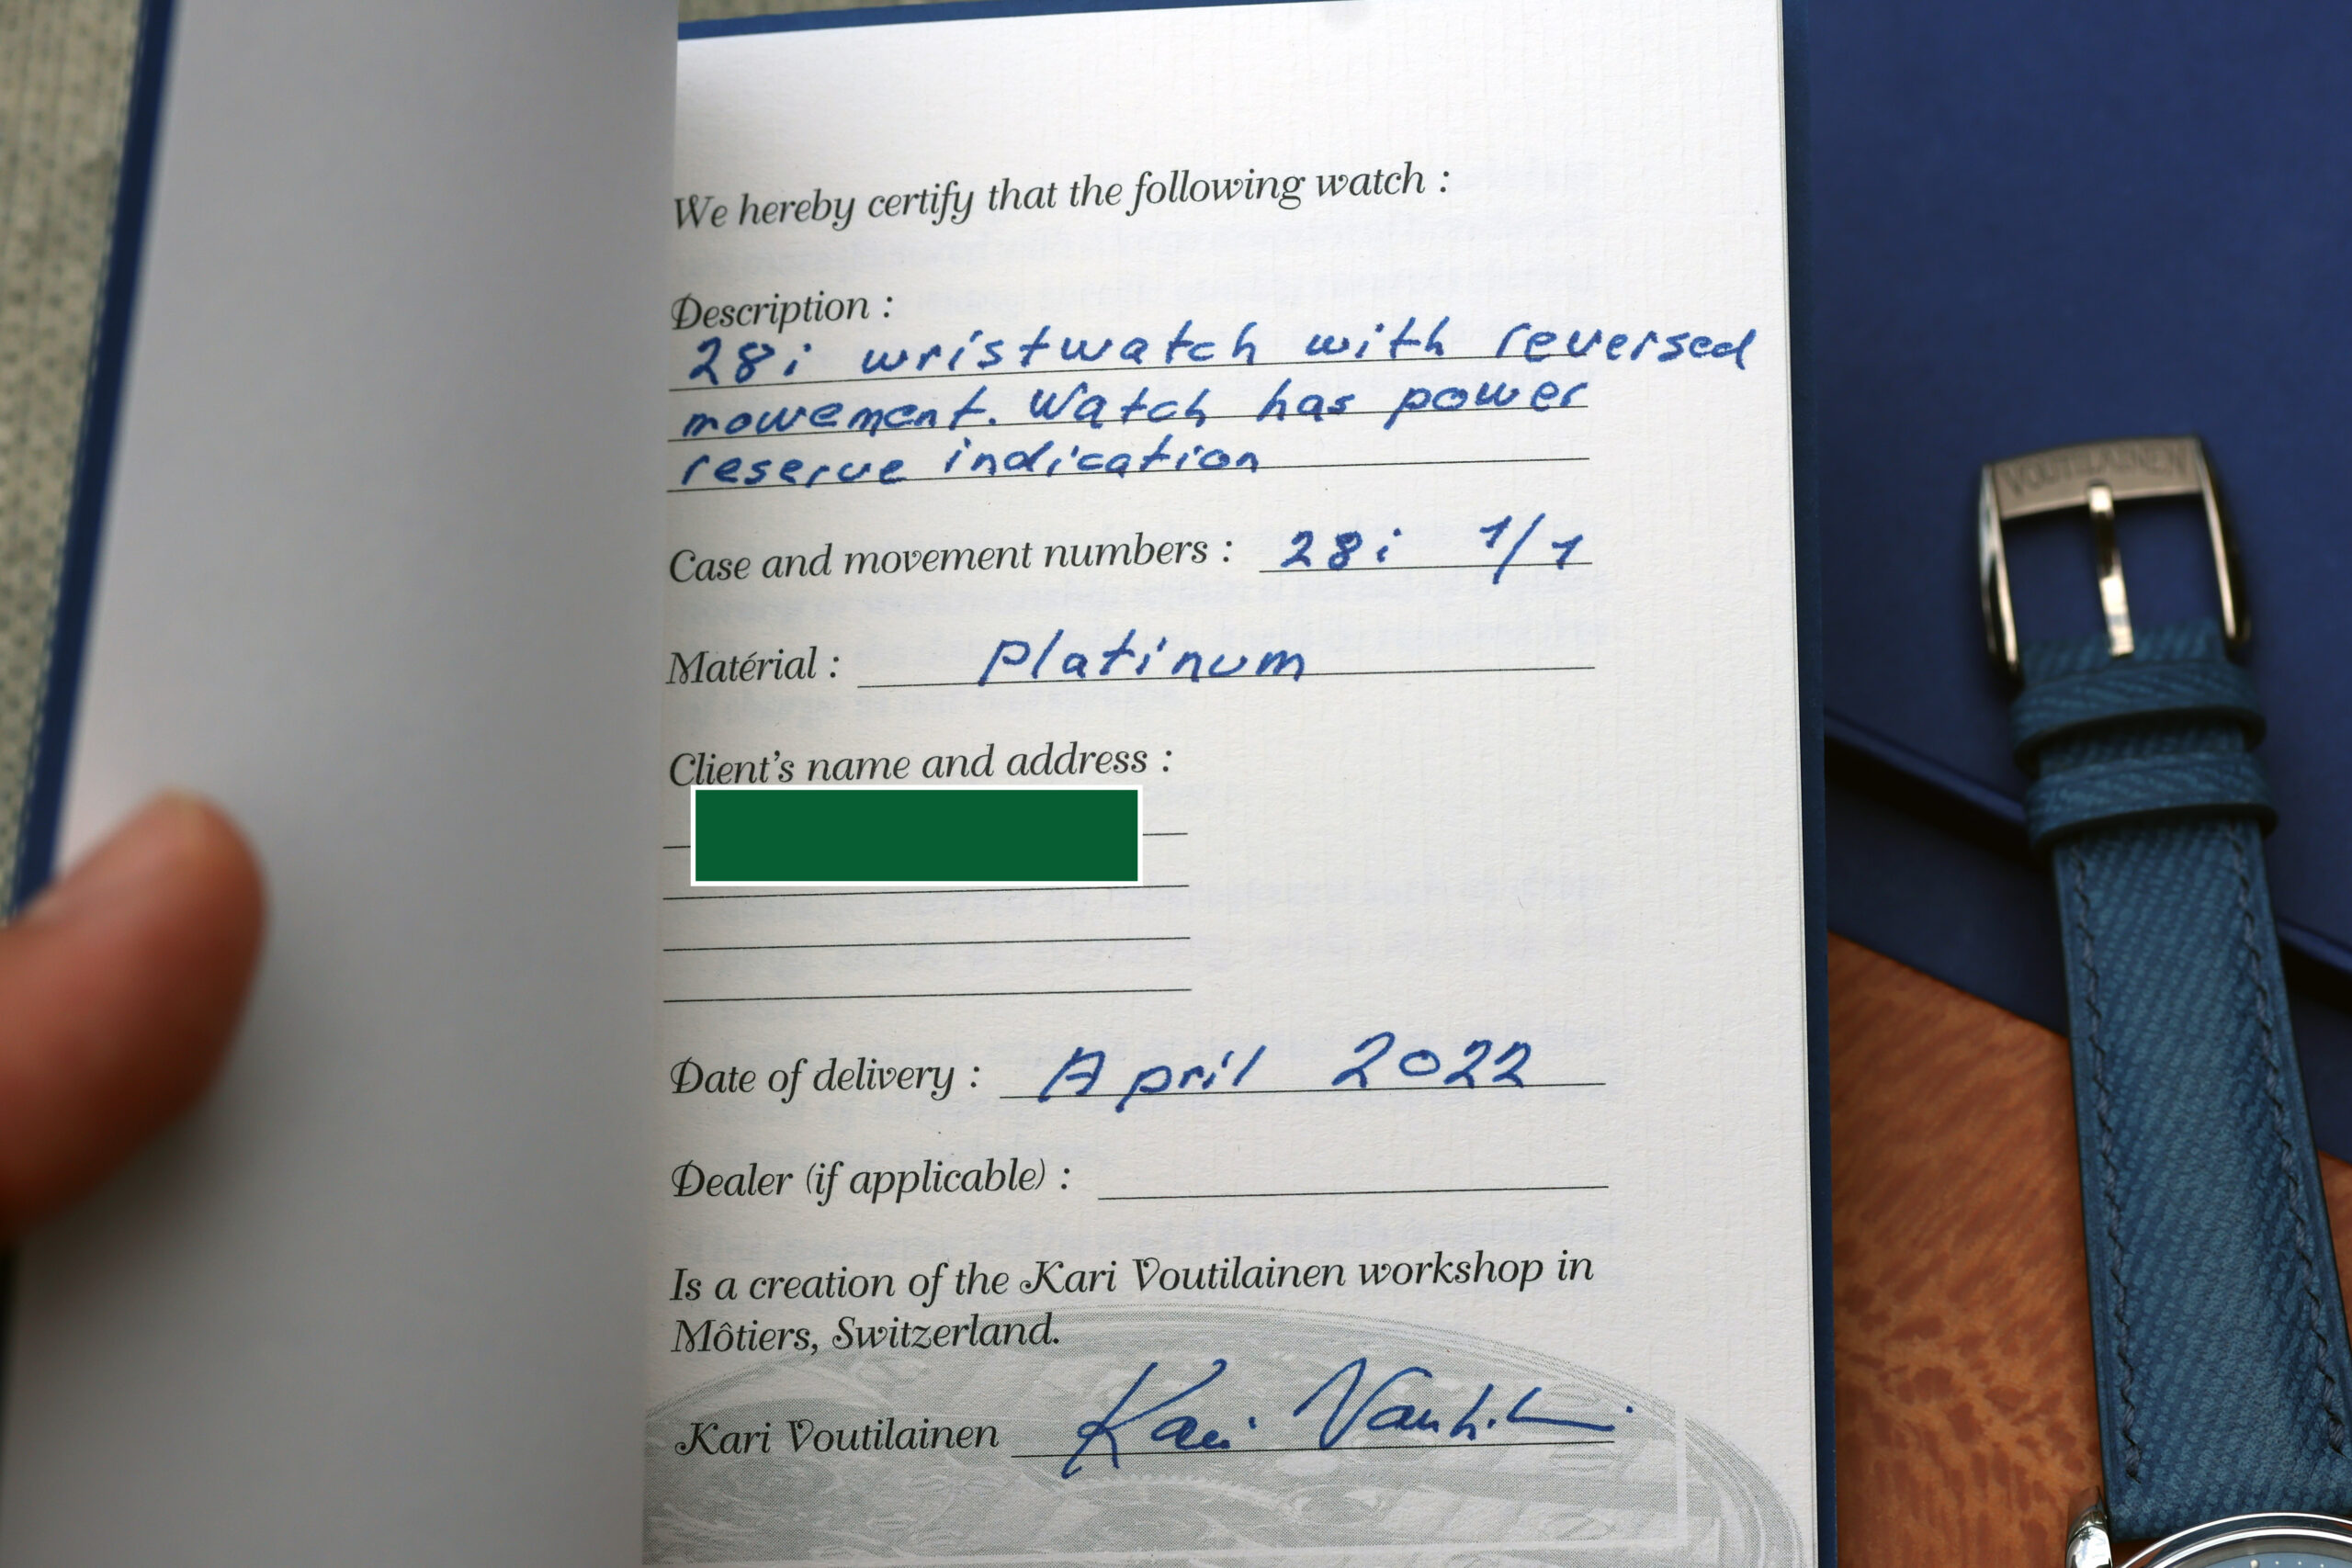 We hereby certify that the following watch :
Description :
28i wristwatch with reversed
mowement. Watch has power
reserve indication
Case and movement numbers : 28i 1/1
Matérial : Platinum
Client's name and address :
Date of delivery : April 2022
Dealer (if applicable) :
Is a creation of the Kari Voutilainen workshop in
Môtiers, Switzerland.
Kari Voutilainen Kari Voutilainen
VOUTILAINEN